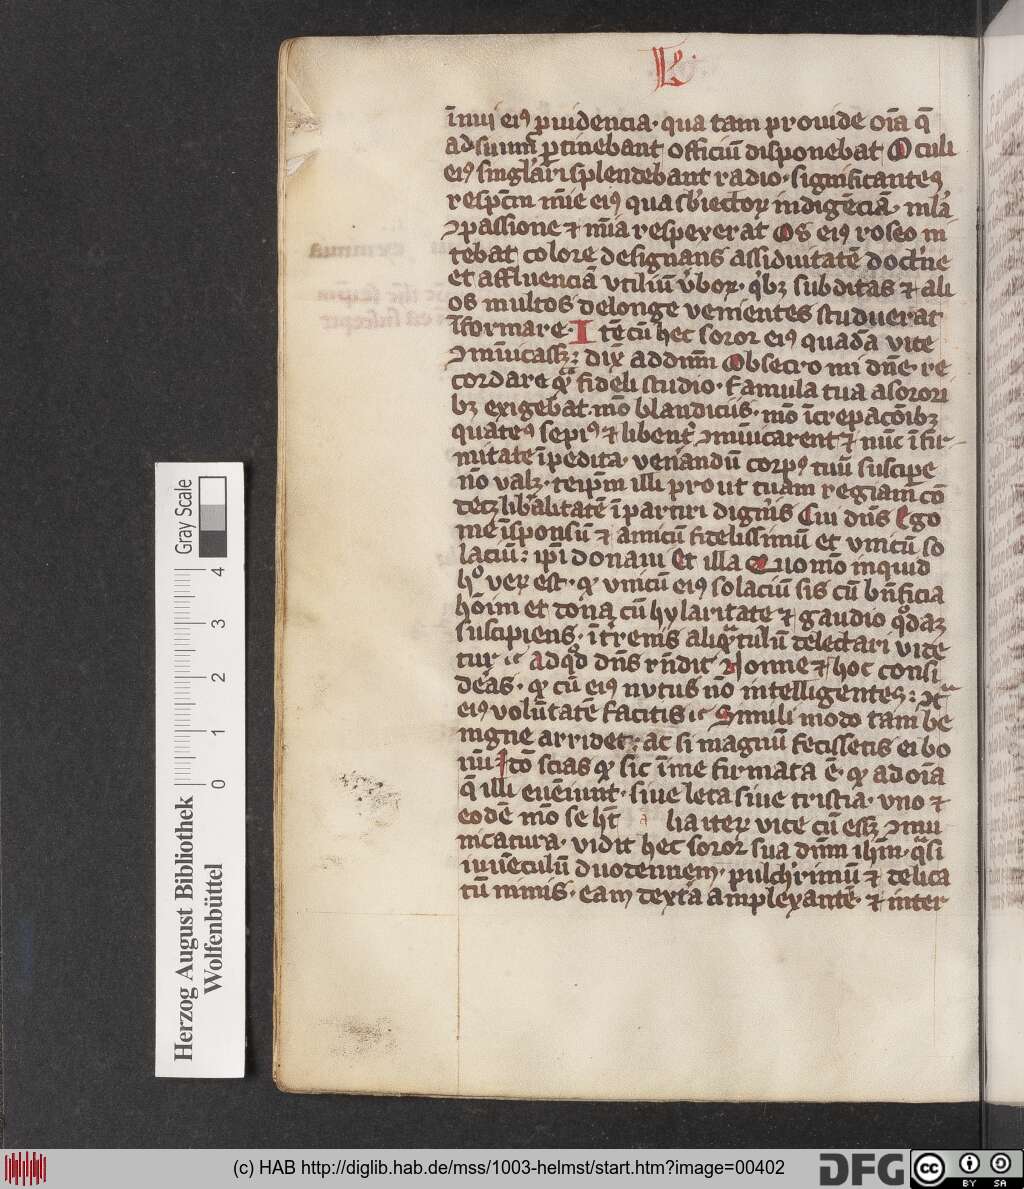 L
īnuj eiꝯ ꝓuidencia· qua tam prouide oīa q̄
ad suum̄ ꝑtinebant officiū disponebat Oculi
eiꝯ singl'ari splendebant radio· significantes
respc̄m mīe eiꝯ qua indigēciā·
ↄpassione ⁊ mīa respexerat Os eiꝯ roseo ni
tebat colore designans assiduitatē doct'ne
et affluenciā vtiliū v̓boꝝ· q̓bꝫ subditas ⁊ ali
os multos delonge venientes studuerat
īformare· Itē cū hec soror eiꝯ quadā vice
ↄmūicassꝫ dix̄ ad dn̄m Obsecro mi dn̄e re
cordare fideli studio· famula tua a sorori
bꝫ exigebat mō blandiciis· mō īcrepac̄oībꝫ
quateꝯ sepiꝯ ⁊ libent̓ ↄmūicarent ⁊ nūc ī fir
mitate īpedita· venandū corpꝯ tuū suscipe
nō valꝫ· teip̄m illi prout tuam regiam̄ cō
decꝫ lib̓alitatē īpartiri dign̓is Cui dn̄s Ego
me ī sponsū ⁊ amicū fidelissimū et vnicū so
laciū: ip̄i donaui Et illa Quomō inquid
hͦ veꝝ est· vnicū eiꝯ solaciū sis cū bn̄ficia
hōim et dona cū hylaritate ⁊ gaudio q̓daꝫ
suscipiens· ī t̓renis aliqͣntulū delectari vide
tur Ad qd̓ dn̄s rn̄dit Nonne ⁊ hoc consi
deras· cū eiꝯ nutus nō intelligentes:
eiꝯ volūtatē facitis Simili modo tam be
nigne arridet ac si magnū fecissetis ei bo
nū Itō scias sic ī me firmata ē· ad oīa
q̄ illi euēiunt· siue leta siue tristia· vno ⁊
eodē mō se hꝫ alia iteꝝ vice cū essꝫ ↄmu
nicatura· vidit hec soror sua dn̄m ihm̄· qͣsi
iuuēculū duodennem· pulch̓rimū ⁊ delica
tū nimis· eam dextͣa amplexantē· ⁊ inter
Herzog August Bibliothek
Wolfenbüttel
0 1 2 3 4
Gray Scale
(c) HAB http://diglib.hab.de/mss/1003-helmst/start.htm?image=00402
DFG
cc BY SA